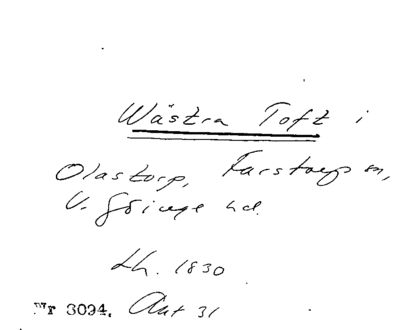 Wästra Toft i
Olastorp, Farstorps sn,
V. Göinge hd.
Lh. 1830
Nr 3094. Akt 31